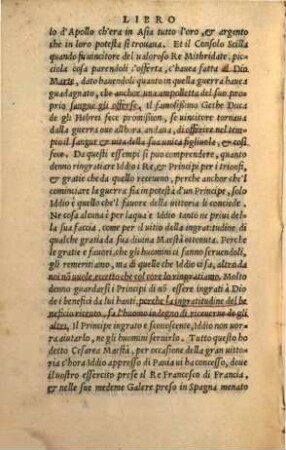 LIBRO
lo d'Apollo ch'era in Asia tutto l'oro, & argento
che in loro potesta si trouaua. Et il Consolo Scilla
quando fu uincitore del ualoroso Re Mithridate, pic-
ciola cosa parendoli l'offerta, c'haueua fatta al Dio
Marte, dato hauendoli quanto in quella guerra hauea
guadagnato, che anchor una ampolletta del suo pro-
prio sangue gli offerse. Il famosissimo Gethe Duca
de gli Hebrei fece promission, se uincitore tornaua
dalla guerra oue allhora andaua, di offerire nel tem-
pio il sangue & uita della sua unica figliuola, & cosi
fece. Da questi essempi si puo comprendere, quanto
denno ringratiare Iddio i Re, & Principi per i trionfi,
& gratie che da quello riceuono, perche anchor che'l
cominciare la guerra sia in potestà d'un Principe, solo
Iddio è quello che'l fauore della uittoria li conciede.
Ne cosa alcuna è per laqua e Iddio tanto ne priui del-
la sua faccia, come per il uitio della ingratitudine di
qualche gratia da sua diuina Maestà ottenuta. Perche
le gratie e fauori, che gli huomini ci fanno seruendo-
gli remeritiamo, ma di quelle che Iddio ci fa, altro
da noi nõ uuole eccetto che col core lo ringratiamo. Molto
denno guardarsi i Principi di nõ essere ingrati à Dio
de i benefici da lui hauti, perche la ingratitudine del be
neficio riceuto, fa l'huomo indegno di riceuerne de gli
altri. Il Principe ingrato e sconoscente, Iddio non uor-
ra aiutarlo, ne gli huomini seruirlo. Tutto questo ho
detto Cesarea Maestà, per occasione della gran uitto-
ria c'hora Iddio appresso di Pauia ui ha concesso, doue
il uostro essercito prese il Re Francesco di Francia,
& nelle sue medeme Galere preso in Spagna menato